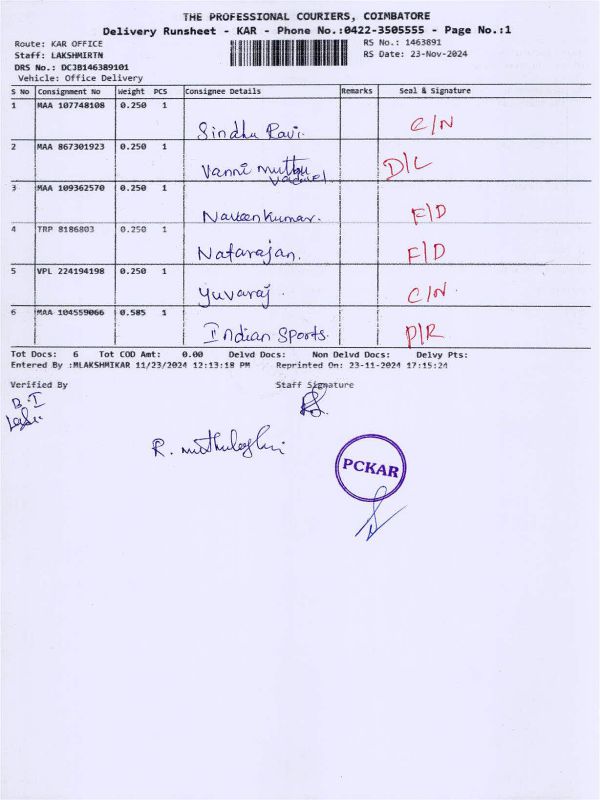 THE PROFESSIONAL COURIERS, COIMBATORE
Delivery Runsheet - KAR - Phone No.:0422-3505555 - Page No.:1
Route: KAR OFFICE RS No.: 1463891
Staff: LAKSHMIRTN RS Date: 23-Nov-2024
DRS No.: DC3B146389101
Vehicle: Office Delivery
S No Consignment No Weight PCS Consignee Details Remarks Seal & Signature
1 MAA 107748108 0.250 1 Sindhu Ravi. C/N
2 MAA 867301923 0.250 1 Vanni muthu D/L
vadivel
3 MAA 109362570 0.250 1 Naveenkumar. F/D
4 TRP 8186803 0.250 1 Natarajan. F/D
5 VPL 224194198 0.250 1 Yuvaraj. C/N.
6 MAA 104559066 0.585 1 Indian Sports. P/R
Tot Docs: 6 Tot COD Amt: 0.00 Delvd Docs: Non Delvd Docs: Delvy Pts:
Entered By :MLAKSHMIKAR 11/23/2024 12:13:18 PM Reprinted On: 23-11-2024 17:15:24
Verified By Staff Signature
B.I
PCKAR